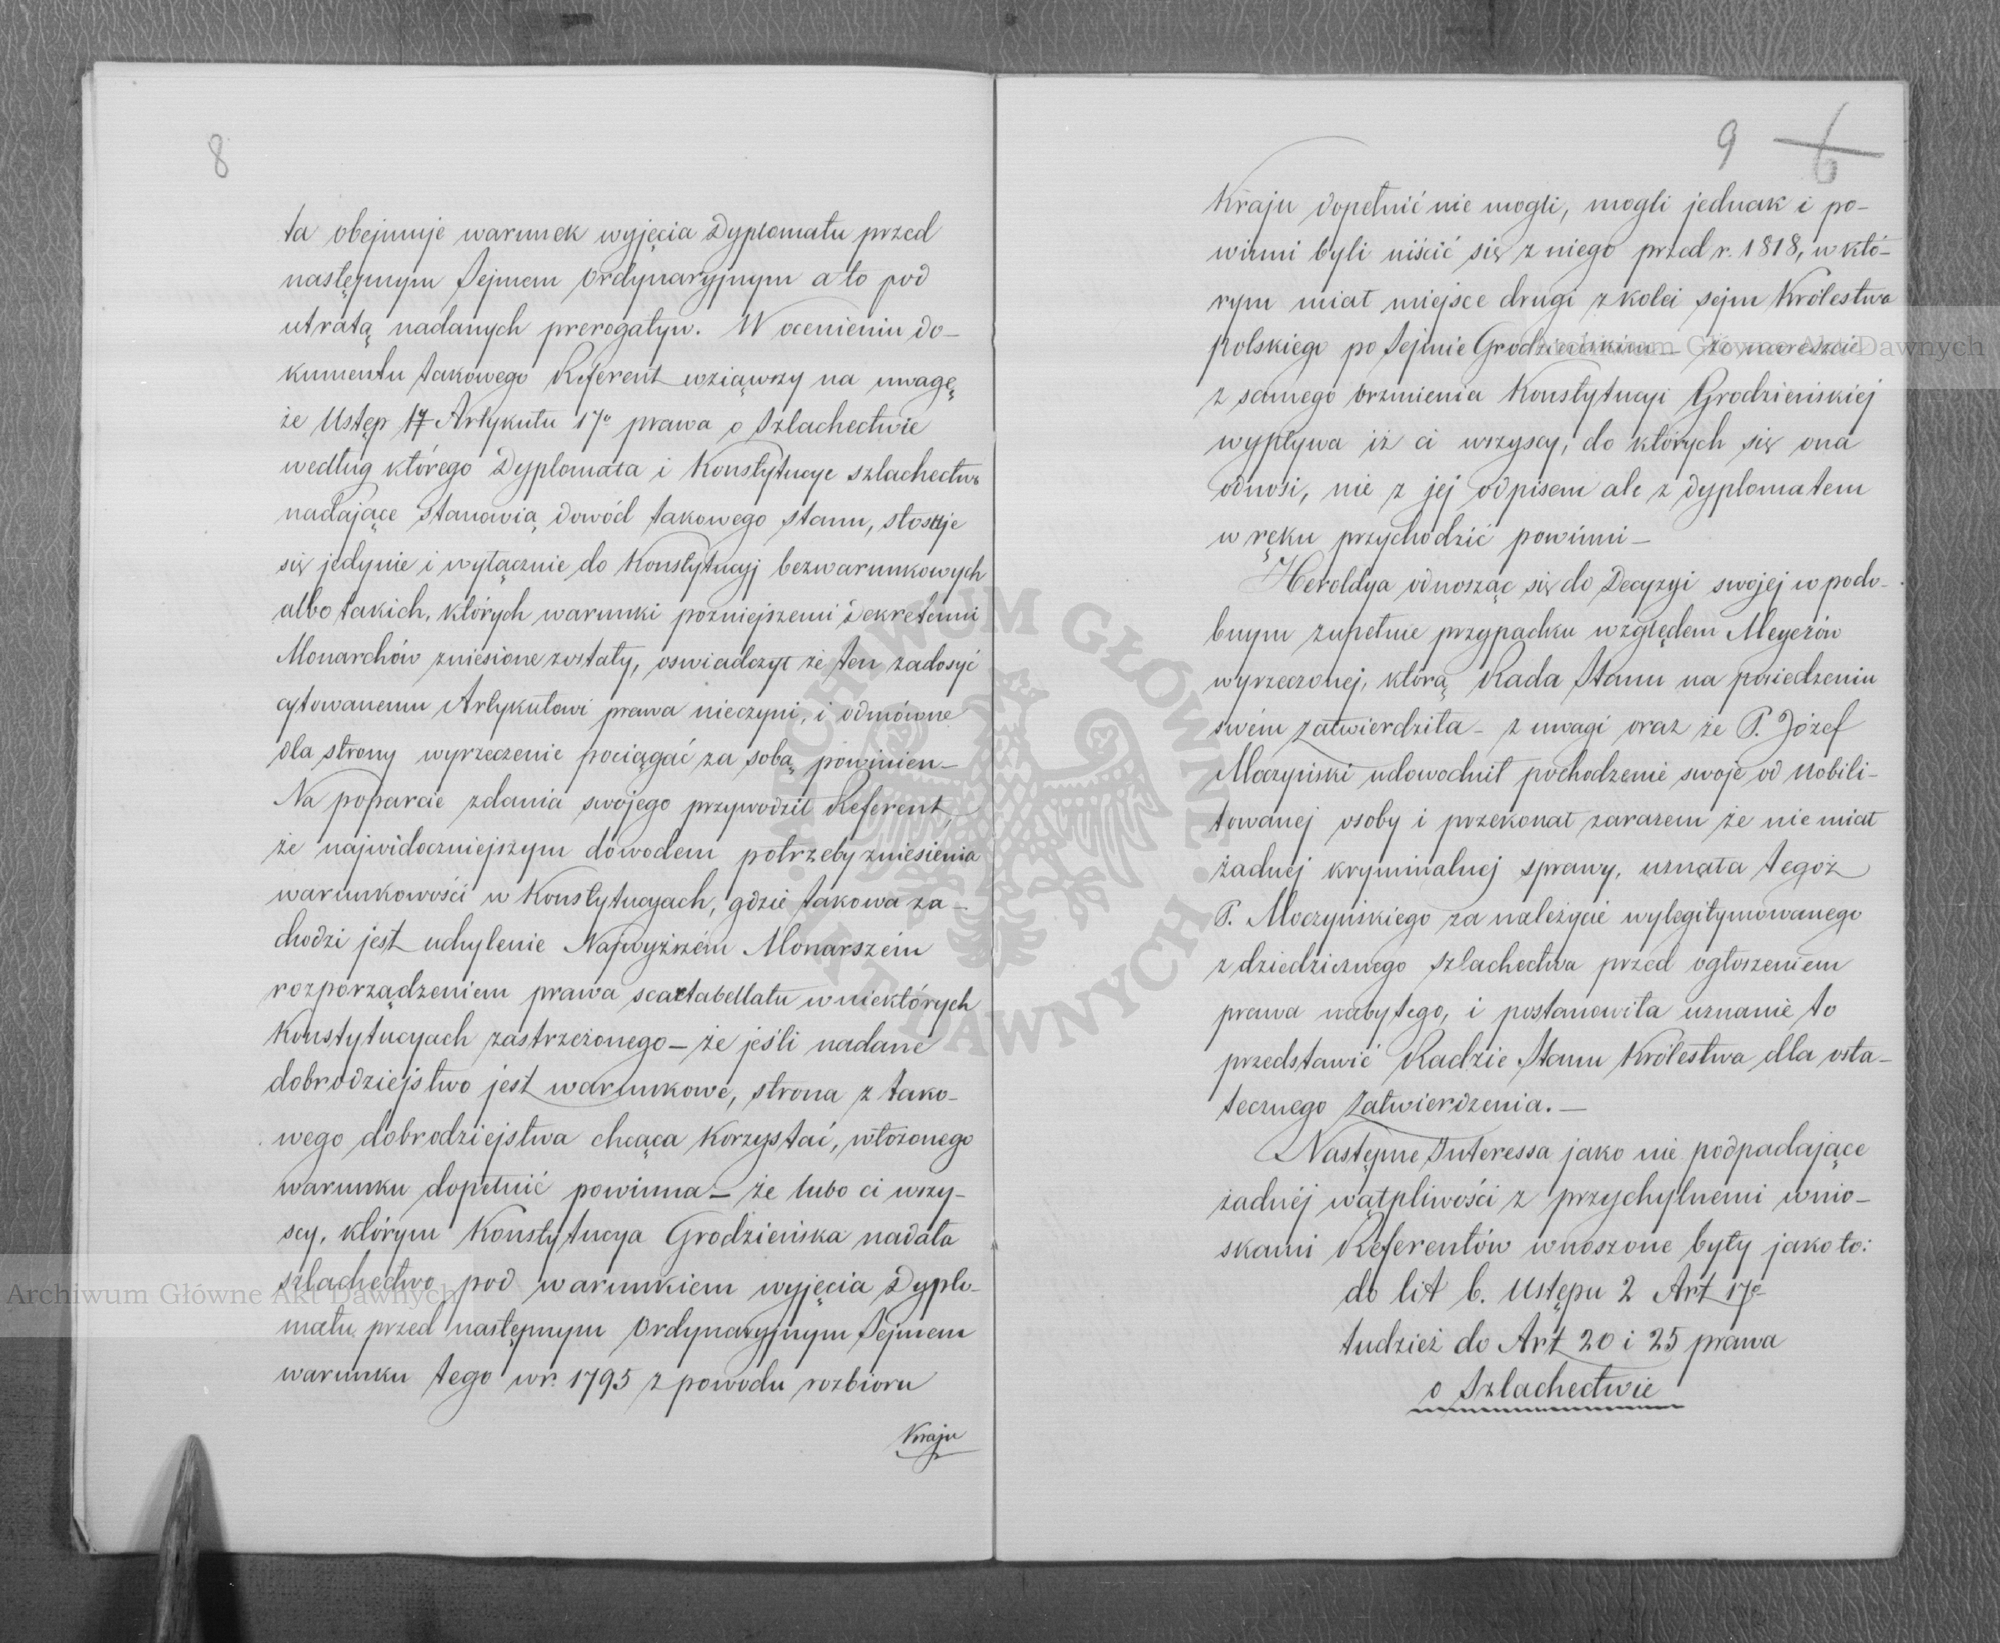 8
ta obejmuje warunek wyjęcia Dyplomatu przed
następnym Sejmem Ordynaryjnym a to pod
utratą nadanych prerogatyw. W ocenieniu do-
kumentu takowego Referent wziąwszy na uwagę
że Ustęp 17 Artykułu 17º prawa o Szlachectwie
według którego Dyplomata i Konstytucye szlachectwo
nadające stanowią dowód takowego stanu, stosuje
się jedynie i wyłącznie do Konstytucyj bezwarunkowych
albo takich, których warunki poźniejszemi Dekretami
Monarchów zniesione zostały, oswiadczył że ten zadosyć
cytowanemu Artykułowi prawa nieczyni, i odmówne
dla strony wyrzeczenie pociągać za sobą powinien—
Na poparcie zdania swojego przywodził Referent,
że najwidoczniejszym dowodem potrzeby zniesienia
warunkowości w Konstytucyach, gdzie takowa za-
chodzi jest uchylenie Najwyższém Monarszém
rozporządzeniem prawa scartabellatu w niektórych
Konstytucyach zastrzeżonego — że jeśli nadane
dobrodziejstwo jest warunkowe, strona z tako-
wego dobrodziejstwa chcąca korzystać, włożonego
warunku dopełnić powinna — że lubo ci wszy-
scy, którym Konstytucya Grodzieńska nadała
szlachectwo pod warunkiem wyjęcia Dyplo-
matu przed następnym Ordynaryjnym Sejmem
warunku tego w r. 1795 z powodu rozbioru
Kraju
9 6
Kraju dopełnić nie mogli, mogli jednak i po-
winni byli niścić się z niego przed r. 1818, w któ-
rym miał miejsce drugi z kolei sejm Królestwa
Polskiego po Sejmie Grodzieńskim — że nareszcie
z samego brzmienia Konstytucyi Grodzieńskiej
wypływa iż ci wszyscy, do których się ona
odnosi, nie z jej odpisem ale z dyplomatem
w ręku przychodzić powinni —
Heroldya odnosząc się do Decyzyi swojej w podo-
bnym zupełnie przypadku względem Meyerów
wyrzeczonej, którą Rada Stanu na posiedzeniu
swém zatwierdziła — z uwagi oraz że P. Józef
Moczyński udowodnił pochodzenie swoje od Nobili-
towanej osoby i przekonał zarazem że nie miał
żadnej kryminalnej sprawy, uznała tegoż
P. Moczyńskiego za należycie wylegitymowanego
z dziedzicznego szlachectwa przed ogłoszeniem
prawa nabytego, i postanowiła uznanie to
przedstawić Radzie Stanu Królestwa dla osta-
tecznego Zatwierdzenia. —
Następne Interessa jako nie podpadające
żadnéj wątpliwości z przychylnemi wnio-
skami Referentów wnoszone były jako to:
do lit b. Ustępu 2 Art 17º
tudzież do Art 20 i 25 prawa
o Szlachectwie
Archiwum Główne Akt Dawnych
Archiwum Główne Akt Dawnych
ARCHIWUM GŁÓWNE · AKT DAWNYCH ·